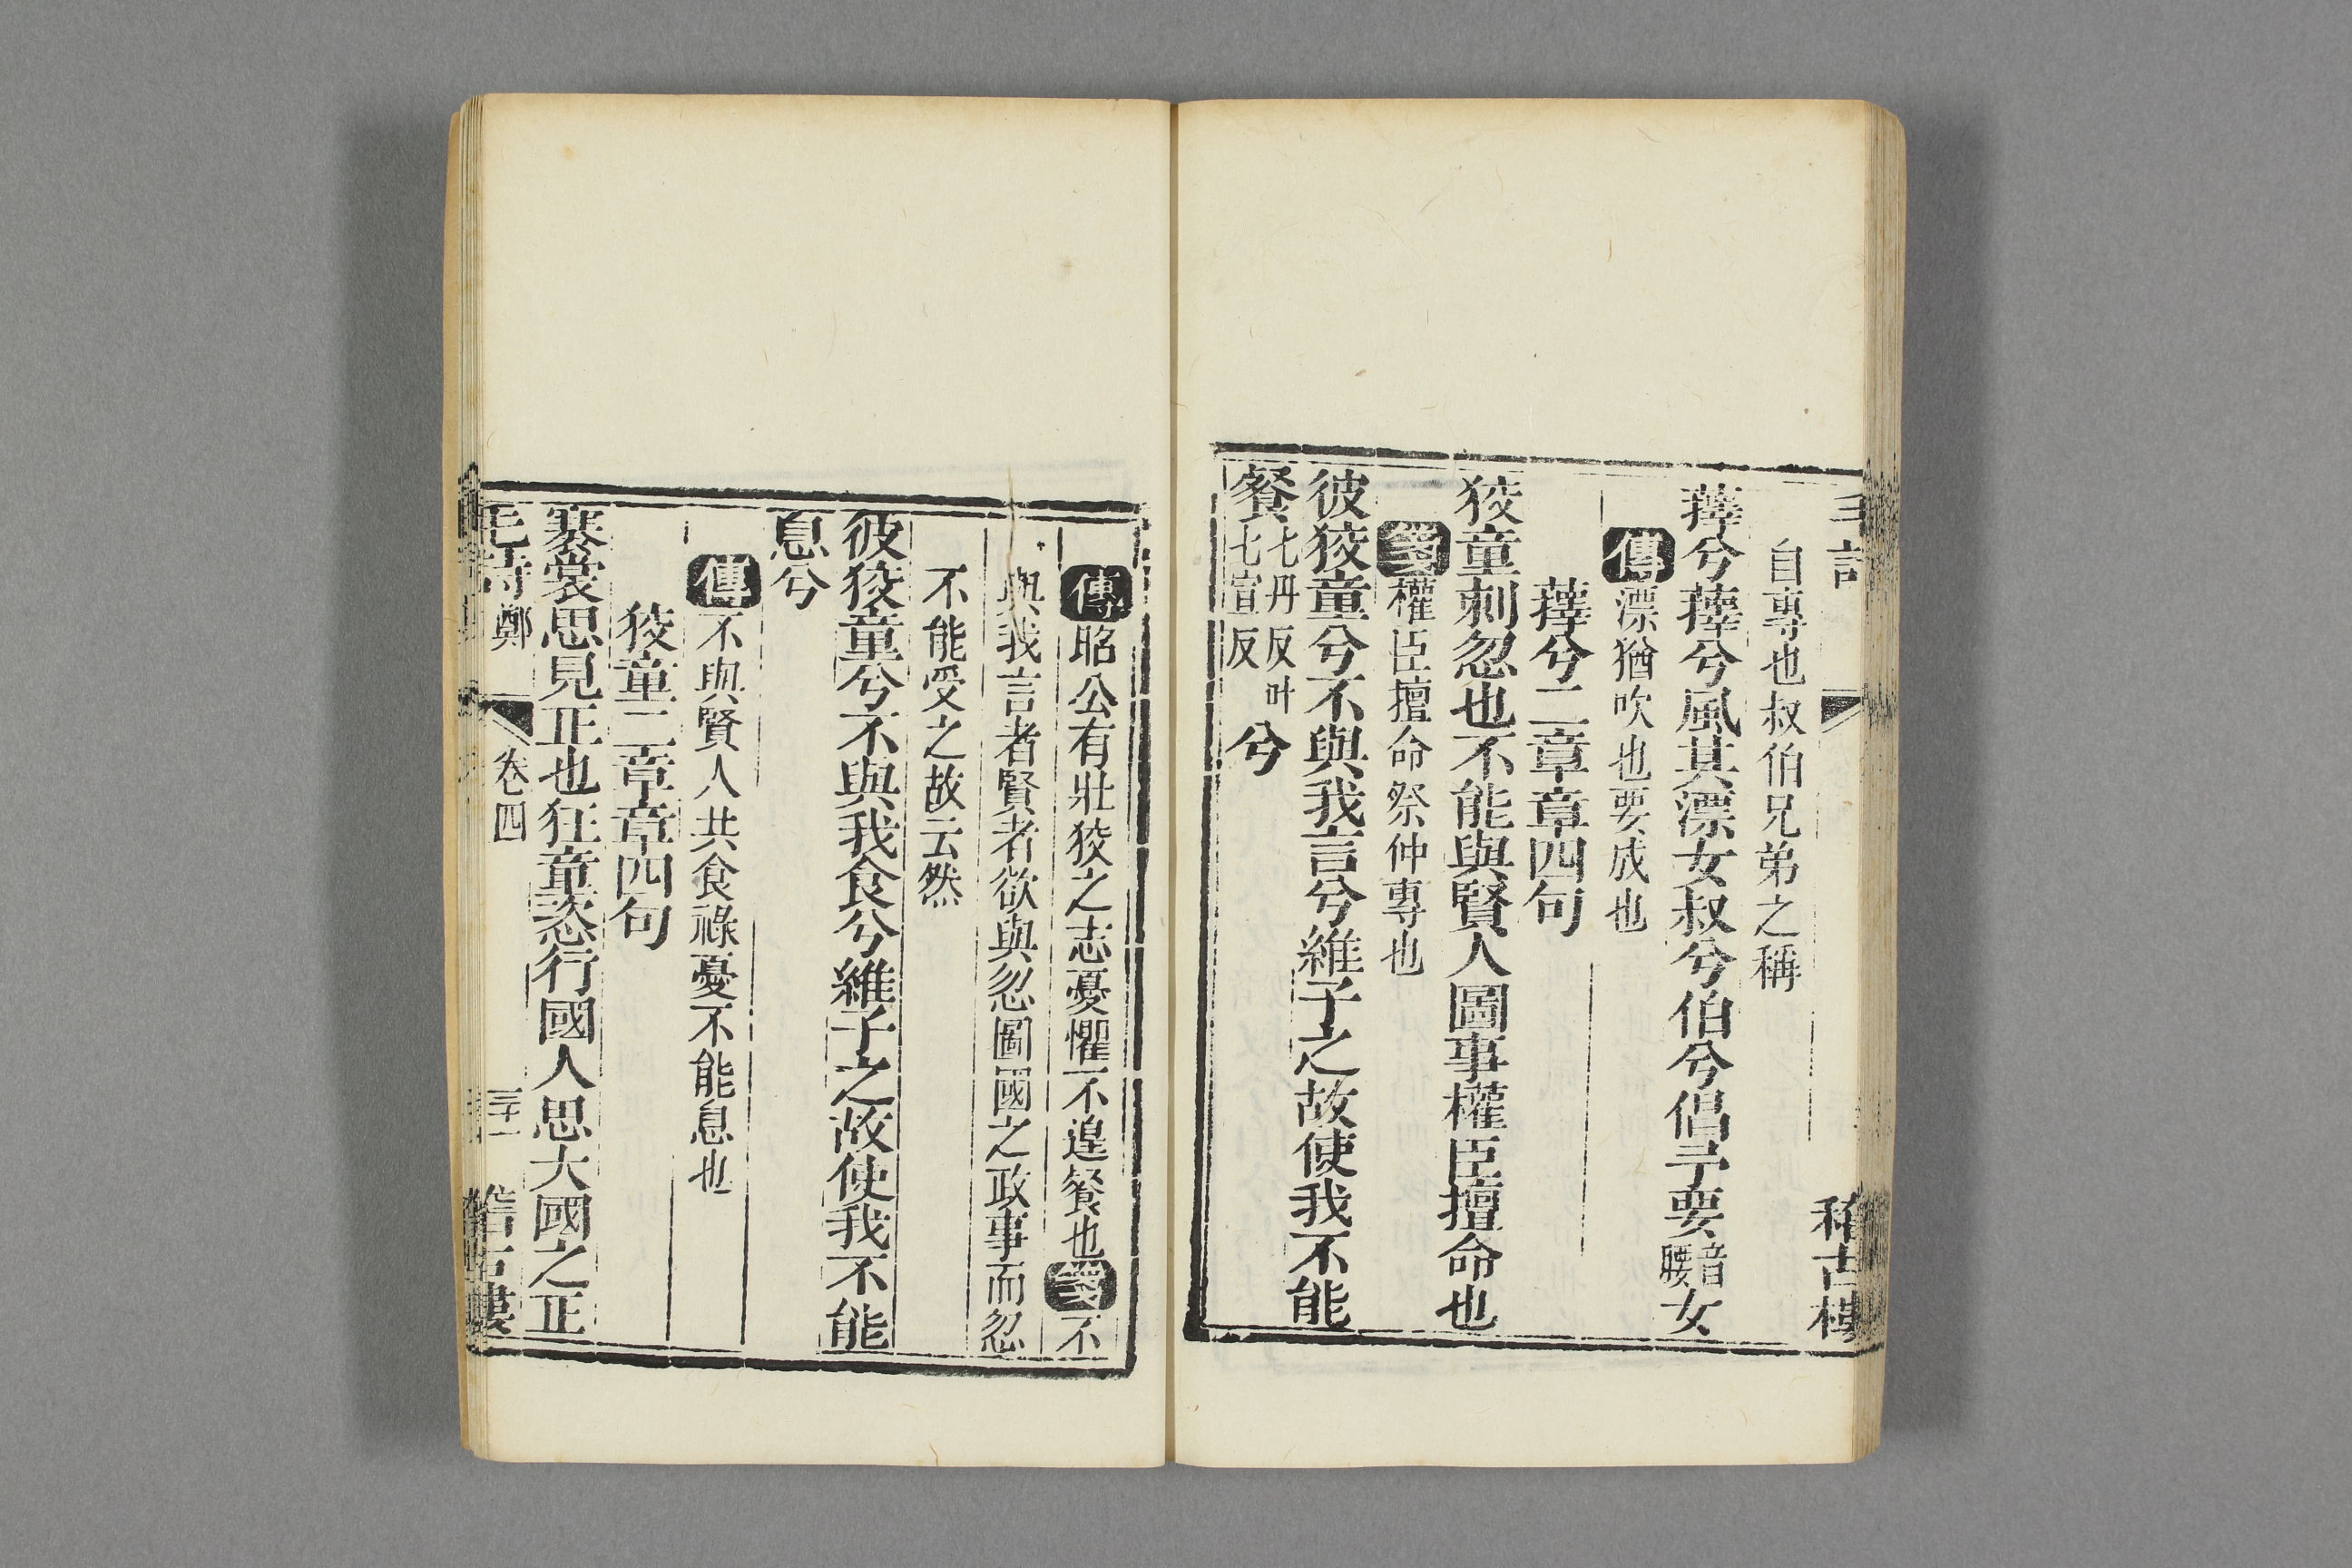 毛詩 稽古樓
自專也叔伯兄弟之稱
蘀兮蘀兮風其漂女叔兮伯兮倡予要音腰女
傳漂猶吹也要成也
蘀兮二章章四句
狡童刺忽也不能與賢人圖事權臣擅命也
箋權臣擅命祭仲專也
彼狡童兮不與我言兮維子之故使我不能
餐七丹反叶七宣反兮
傳昭公有壯狡之志憂懼不遑餐也箋不
與我言者賢者欲與忽圖國之政事而忽
不能受之故云然
彼狡童兮不與我食兮維子之故使我不能
息兮
傳不與賢人共食祿憂不能息也
狡童二章章四句
褰裳思見正也狂童恣行國人思大國之正
毛詩 鄭 卷四 三十一 稽古樓